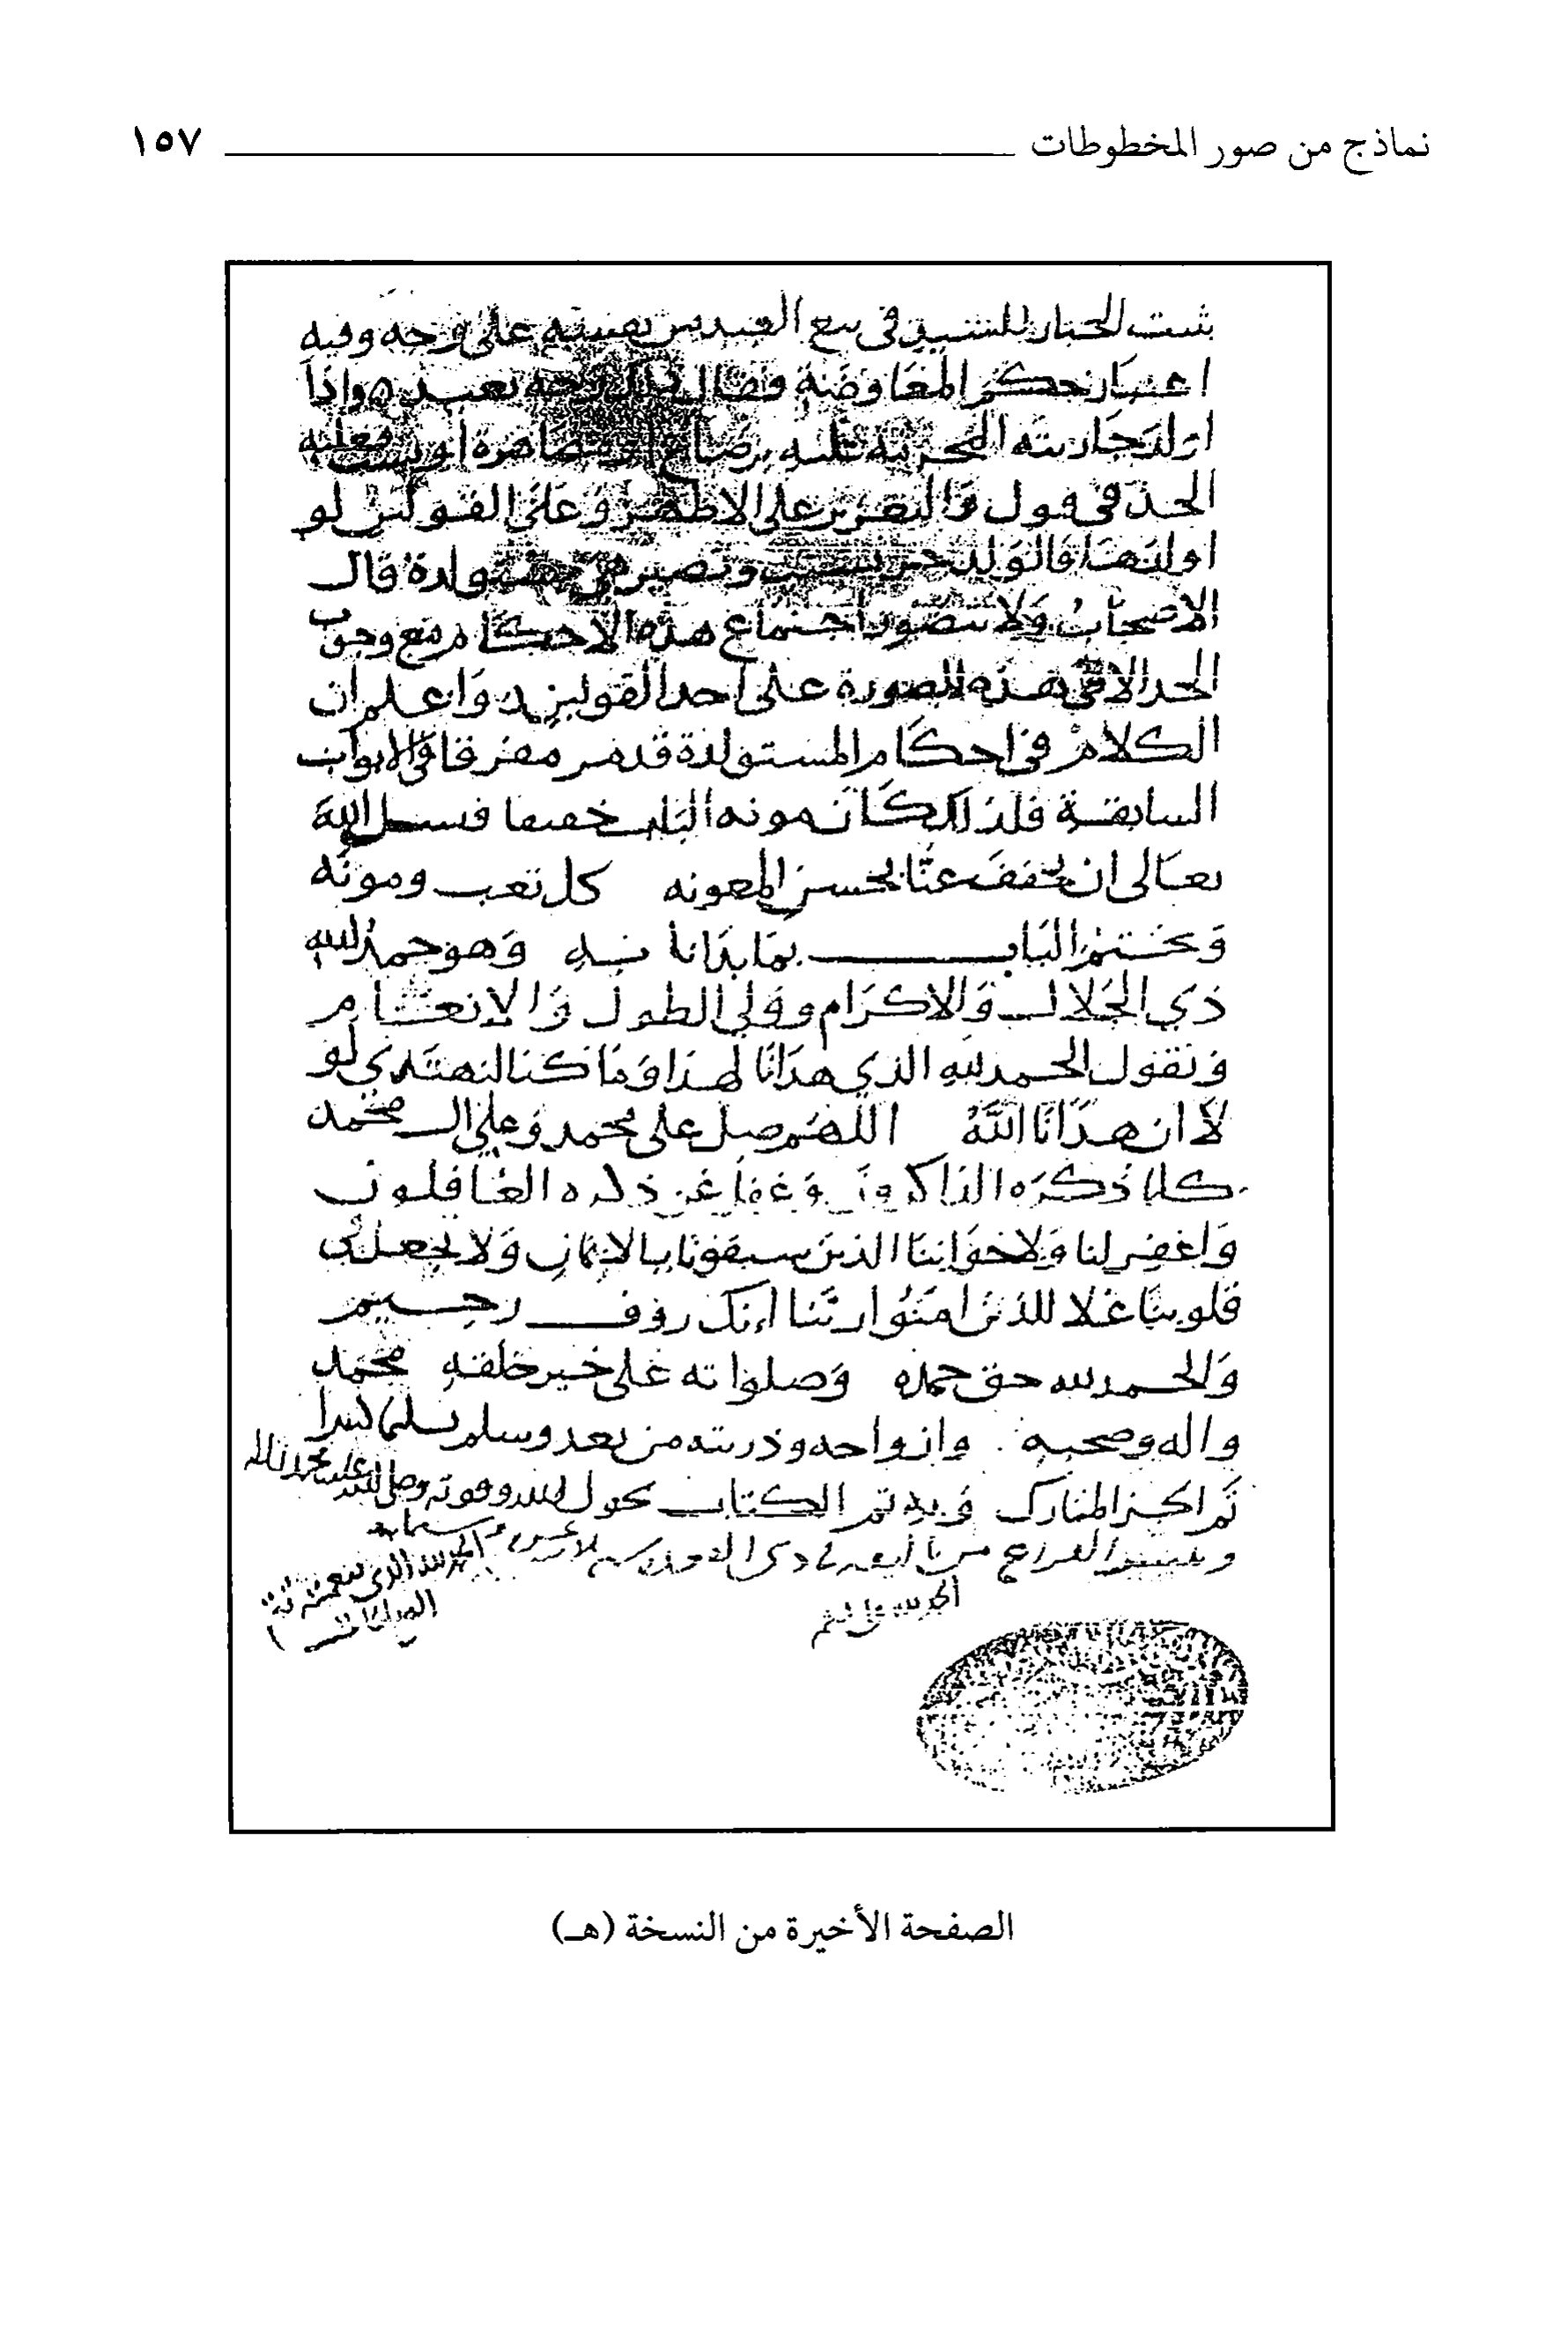 نماذج من صور المخطوطات ١٥٧
يثبت الخيار للسيد في بيع العبد من نفسه على وجه وفيه
اعتبار بحكم المعاوضة وقال
اولد جاريته المحرمة عليه برضاع او مصاهرة او نسب فعليه
الحد في قول والتعزير على الاظهر وعلى القولين لو
اولدها فالولد حر نسيب وتصير هي مستولدة قال
الاصحاب ولا يتصور اجتماع هذه الاحكام مع وجوب
الحد الا في هذه الصورة على احد القولين واعلم ان
الكلام في احكام المستولدة قد مر مفرقا في الابواب
السابقة فلذلك كانت مونه الباب خفيفا فنسل الله
تعالى ان يخفف عنا بحسن المعونه كل تعب ومونه
ونختتم الباب بما بدانا به وهو حمد الله
ذي الجلال والاكرام وولي الطول والانعام
ونقول الحمد لله الذي هدانا لهذا وما كنا لنهتدي لو
لا ان هدانا الله اللهم صل على محمد وعلى ال محمد
كلما ذكره الذاكرون وغفل عن ذكره الغافلون
واغفر لنا ولاخواننا الذين سبقونا بالايمان ولا تجعل في
قلوبنا غلا للذين امنوا ربنا انك روف رحيم
والحمد لله حق حمده وصلواته على خير خلقه محمد
واله وصحبه وازواجه وذريته من بعد وسلم تسليما كثيرا
تم الجز المبارك وبه تم الكتاب بحول الله وقوته وصلى الله على محمد واله
الحمد لله الذي بنعمته تتم
الصالحات
الصفحة الأخيرة من النسخة (هـ)